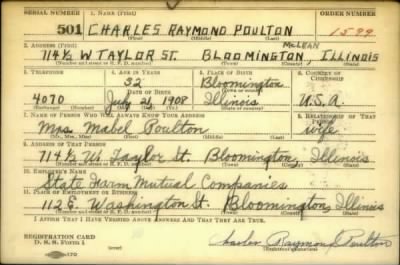 SERIAL NUMBER 1. NAME (Print) ORDER NUMBER
501 CHARLES RAYMOND POULTON 1599
(First) (Middle) (Last)
2. ADDRESS (Print) McLEAN
714½ W TAYLOR ST. BLOOMINGTON, ILLINOIS
(Number and street or R. F. D. number) (Town) (County) (State)
3. TELEPHONE 4. AGE IN YEARS 5. PLACE OF BIRTH 6. COUNTRY OF CITIZENSHIP
32 Bloomington
4070 DATE OF BIRTH (Town or county)
July 21, 1908 Illinois U.S.A.
(Exchange) (Number) (Mo.) (Day) (Yr.) (State or country)
7. NAME OF PERSON WHO WILL ALWAYS KNOW YOUR ADDRESS 8. RELATIONSHIP OF THAT PERSON
Mrs. Mabel Poulton wife
(Mr., Mrs., Miss) (First) (Middle) (Last)
9. ADDRESS OF THAT PERSON
714½ W. Taylor St. Bloomington, Illinois
(Number and street or R. F. D. number) (Town) (County) (State)
10. EMPLOYER'S NAME
State Farm Mutual Companies
11. PLACE OF EMPLOYMENT OR BUSINESS
112 E. Washington St. Bloomington, Illinois
(Number and street or R. F. D. number) (Town) (County) (State)
I AFFIRM THAT I HAVE VERIFIED ABOVE ANSWERS AND THAT THEY ARE TRUE.
REGISTRATION CARD
D. S. S. FORM 1 Charles Raymond Poulton
(Registrant's signature)